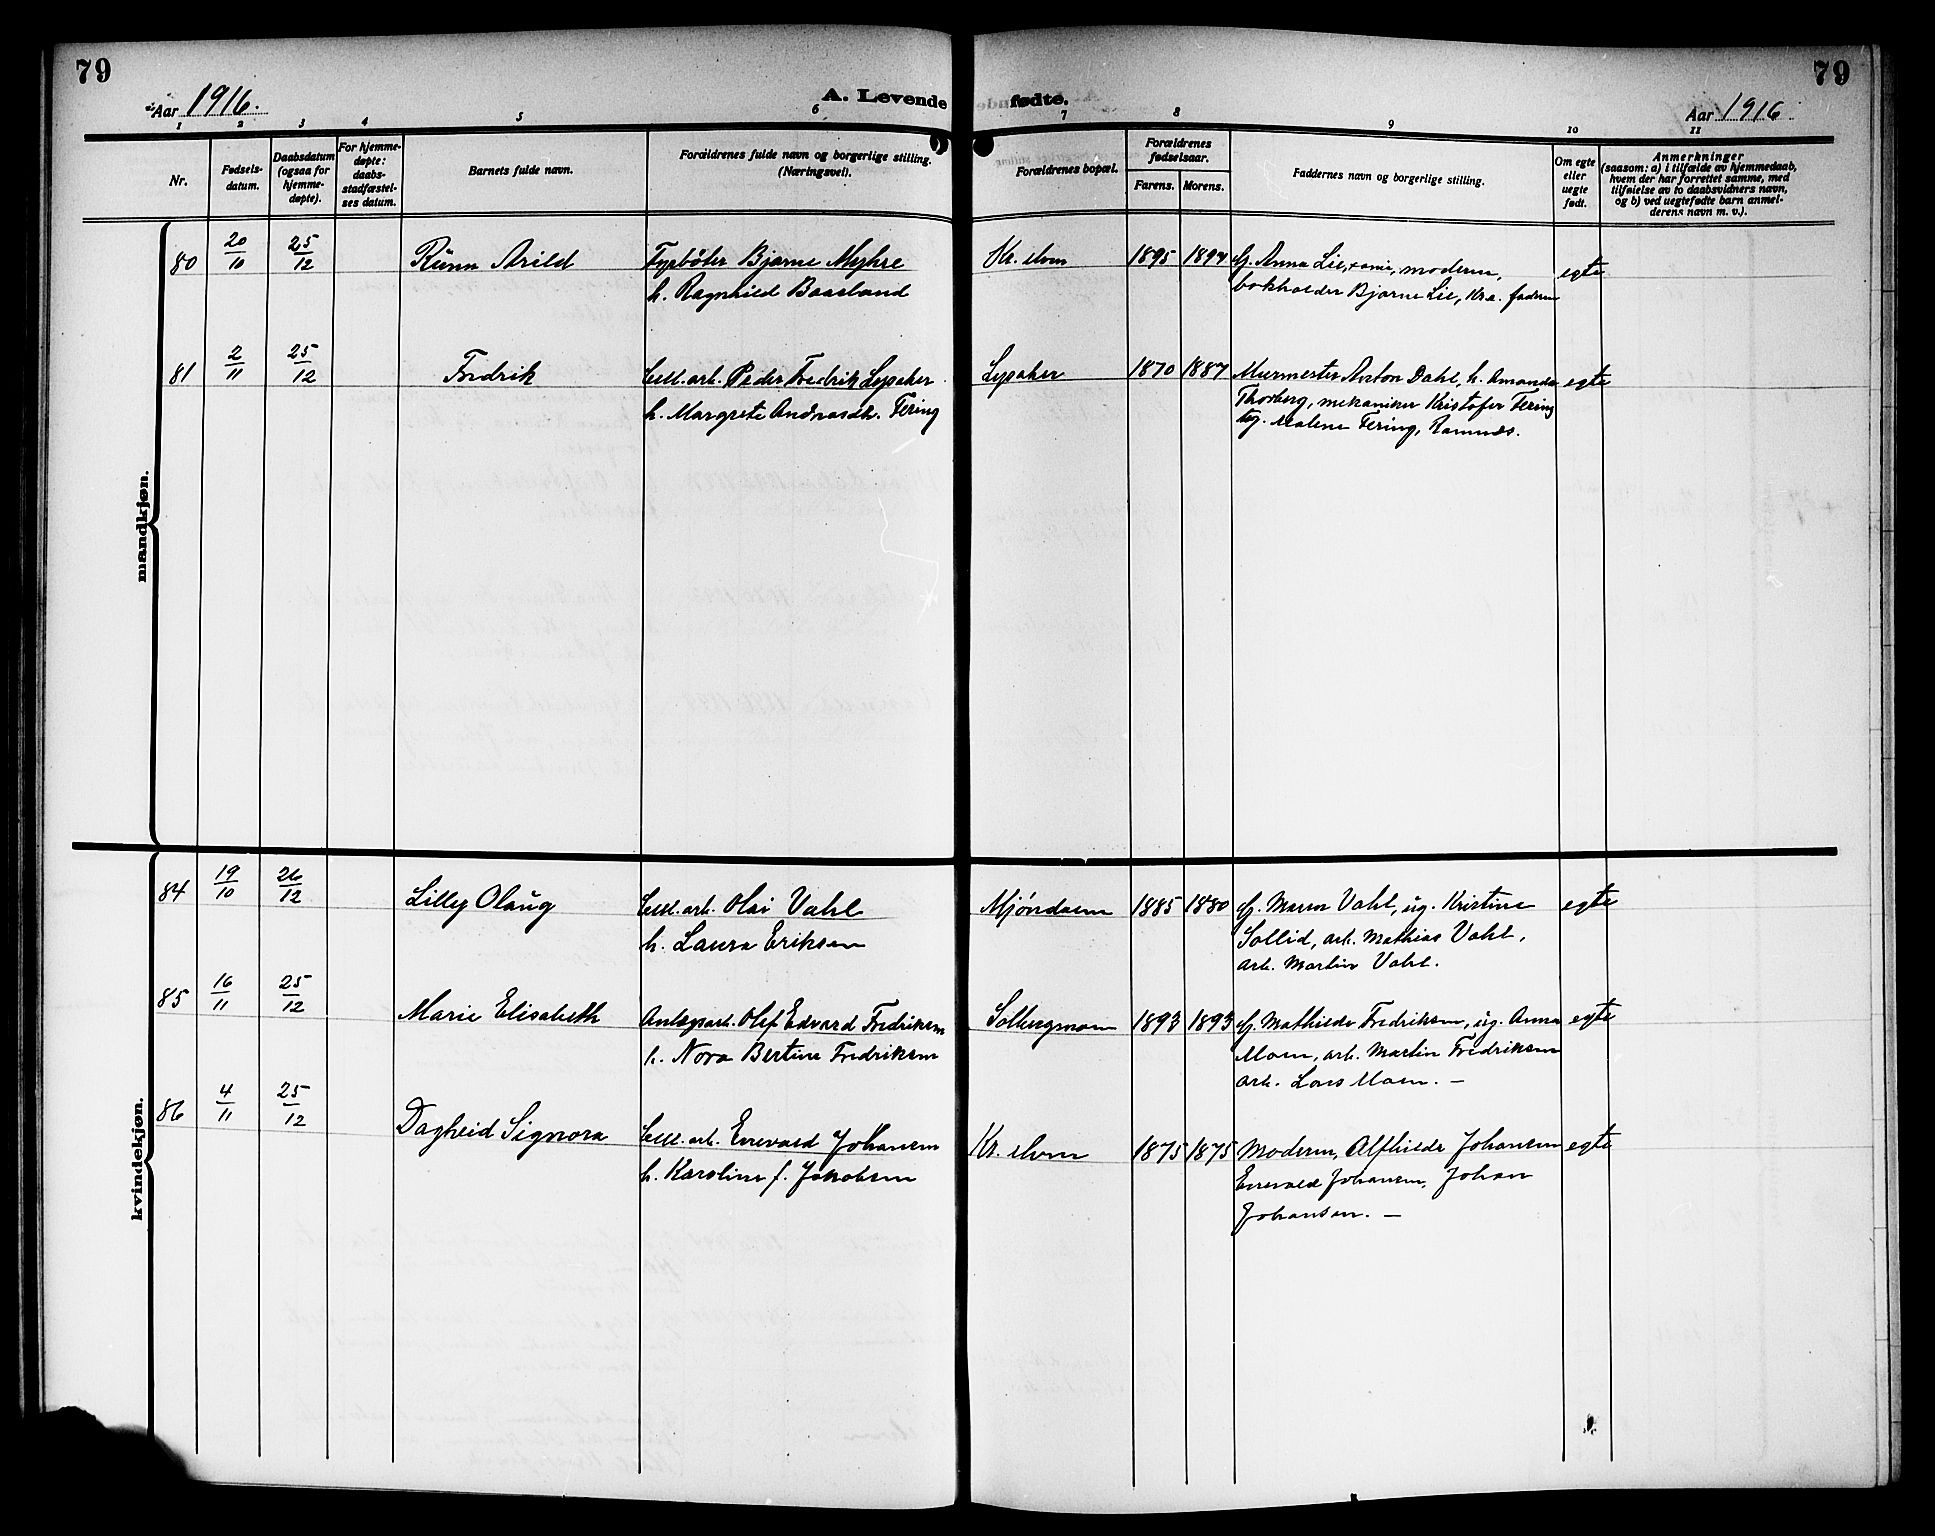 79
Aar 1916.
A. Levende
fødte.
Aar 1916
79
1 2 3 4 5 6 7 8 9 10 11
Nr.
Fødsels-
datum.
Daabsdatum
(ogsaa for
hjemme-
døpte).
For hjemme-
døpte:
daabs-
stadfæstel-
ses datum.
Barnets fulde navn.
Forældrenes fulde navn og borgerlige stilling.
(Næringsvei).
Forældrenes bopæl.
Forældrenes
fødselsaar.
Farens. Morens.
Faddernes navn og borgerlige stilling.
Om egte
eller
uegte
født.
Anmerkninger
(saasom: a) i tilfælde av hjemmedaab,
hvem der har forrettet samme, med
tilføielse av to daabsvidners navn,
og b) ved uegtefødte barn anmel-
derens navn m. v.).
mandkjøn.
80 20/10 25/12 Rünn Arild Fyrbøter Bjarne Myhre Kr. elven 1895 1894 G. Anna Lie, moderen, egte
h. Ragnhild Baasland bokholder Bjarne Lie, Kra. faderen
81 2/11 25/12 Fredrik Cell.arb. Peder Fredrik Lypaker Lypaker 1870 1887 Murmester Anton Dahl, h. Amanda egte
h. Margrete Andreasdt. Fering Thorberg, mekaniker Kristofer Fering
og. Malene Fering, Ramnes.
kvindekjøn.
84 19/10 26/12 Lilly Olaüg Cell.arb. Olai Vahl Mjøndalen 1885 1880 G. Maren Vahl, üg. Kristine egte
h. Laura Eriksen Sollid, arb. Mathias Vahl,
arb. Martin Vahl.
85 16/11 25/12 Marie Elisabeth Anlægsarb. Olef Edvard Fredriksen Solbergmoen 1893 1893 G. Mathilde Fredriksen, üg. Anna egte
h. Nora Bertine Fredriksen Moen, arb. Martin Fredriksen
arb. Lars Moen. —
86 4/11 25/12 Dagheid Signora Cell. arb. Enevald Johansen Kr. elven 1875 1875 Moderen, Alfhilde Johansen egte
h. Karoline f. Jakobsen Enevald Johansen, Johan
Johansen. —